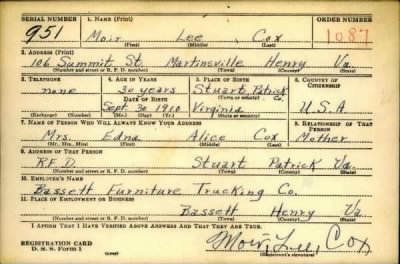 SERIAL NUMBER 1. NAME (Print) ORDER NUMBER
951 Moir Lee Cox 1087
(First) (Middle) (Last)
2. ADDRESS (Print)
106 Summit St. Martinsville Henry Va
(Number and street or R. F. D. number) (Town) (County) (State)
3. TELEPHONE 4. AGE IN YEARS 5. PLACE OF BIRTH 6. COUNTRY OF CITIZENSHIP
none 30 years Stuart, Patrick Co.
DATE OF BIRTH (Town or county)
Sept. 30 1910 Virginia U.S.A
(Exchange) (Number) (Mo.) (Day) (Yr.) (State or country)
7. NAME OF PERSON WHO WILL ALWAYS KNOW YOUR ADDRESS 8. RELATIONSHIP OF THAT PERSON
Mrs. Edna Alice Cox Mother
(Mr., Mrs., Miss) (First) (Middle) (Last)
9. ADDRESS OF THAT PERSON
R.F.D. Stuart Patrick Va.
(Number and street or R. F. D. number) (Town) (County) (State)
10. EMPLOYER'S NAME
Bassett Furniture Trucking Co.
11. PLACE OF EMPLOYMENT OR BUSINESS
Bassett Henry Va.
(Number and street or R. F. D. number) (Town) (County) (State)
I AFFIRM THAT I HAVE VERIFIED ABOVE ANSWERS AND THAT THEY ARE TRUE.
REGISTRATION CARD
D. S. S. Form 1
Moir Lee Cox